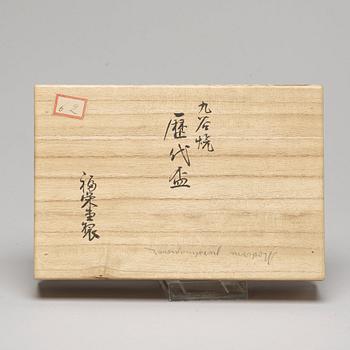 九谷焼
歴代盃
福栄堂製
62